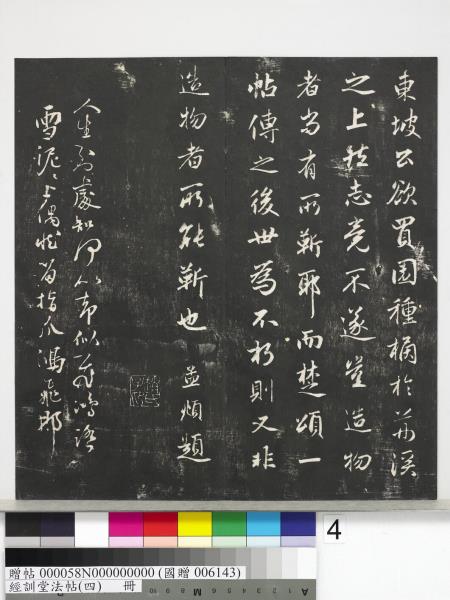 東坡公欲買園種橘於荊溪
之上然志竟不遂豈造物
者尚有所靳耶而楚頌一
帖傳之後世為不朽則又非
造物者所能靳也 孟頫題
人生到處知何似却似飛鴻踏
雪泥〻上偶然留指爪鴻飛那
4
贈帖 000058N000000000 (國贈 006143)
經訓堂法帖(四) 冊